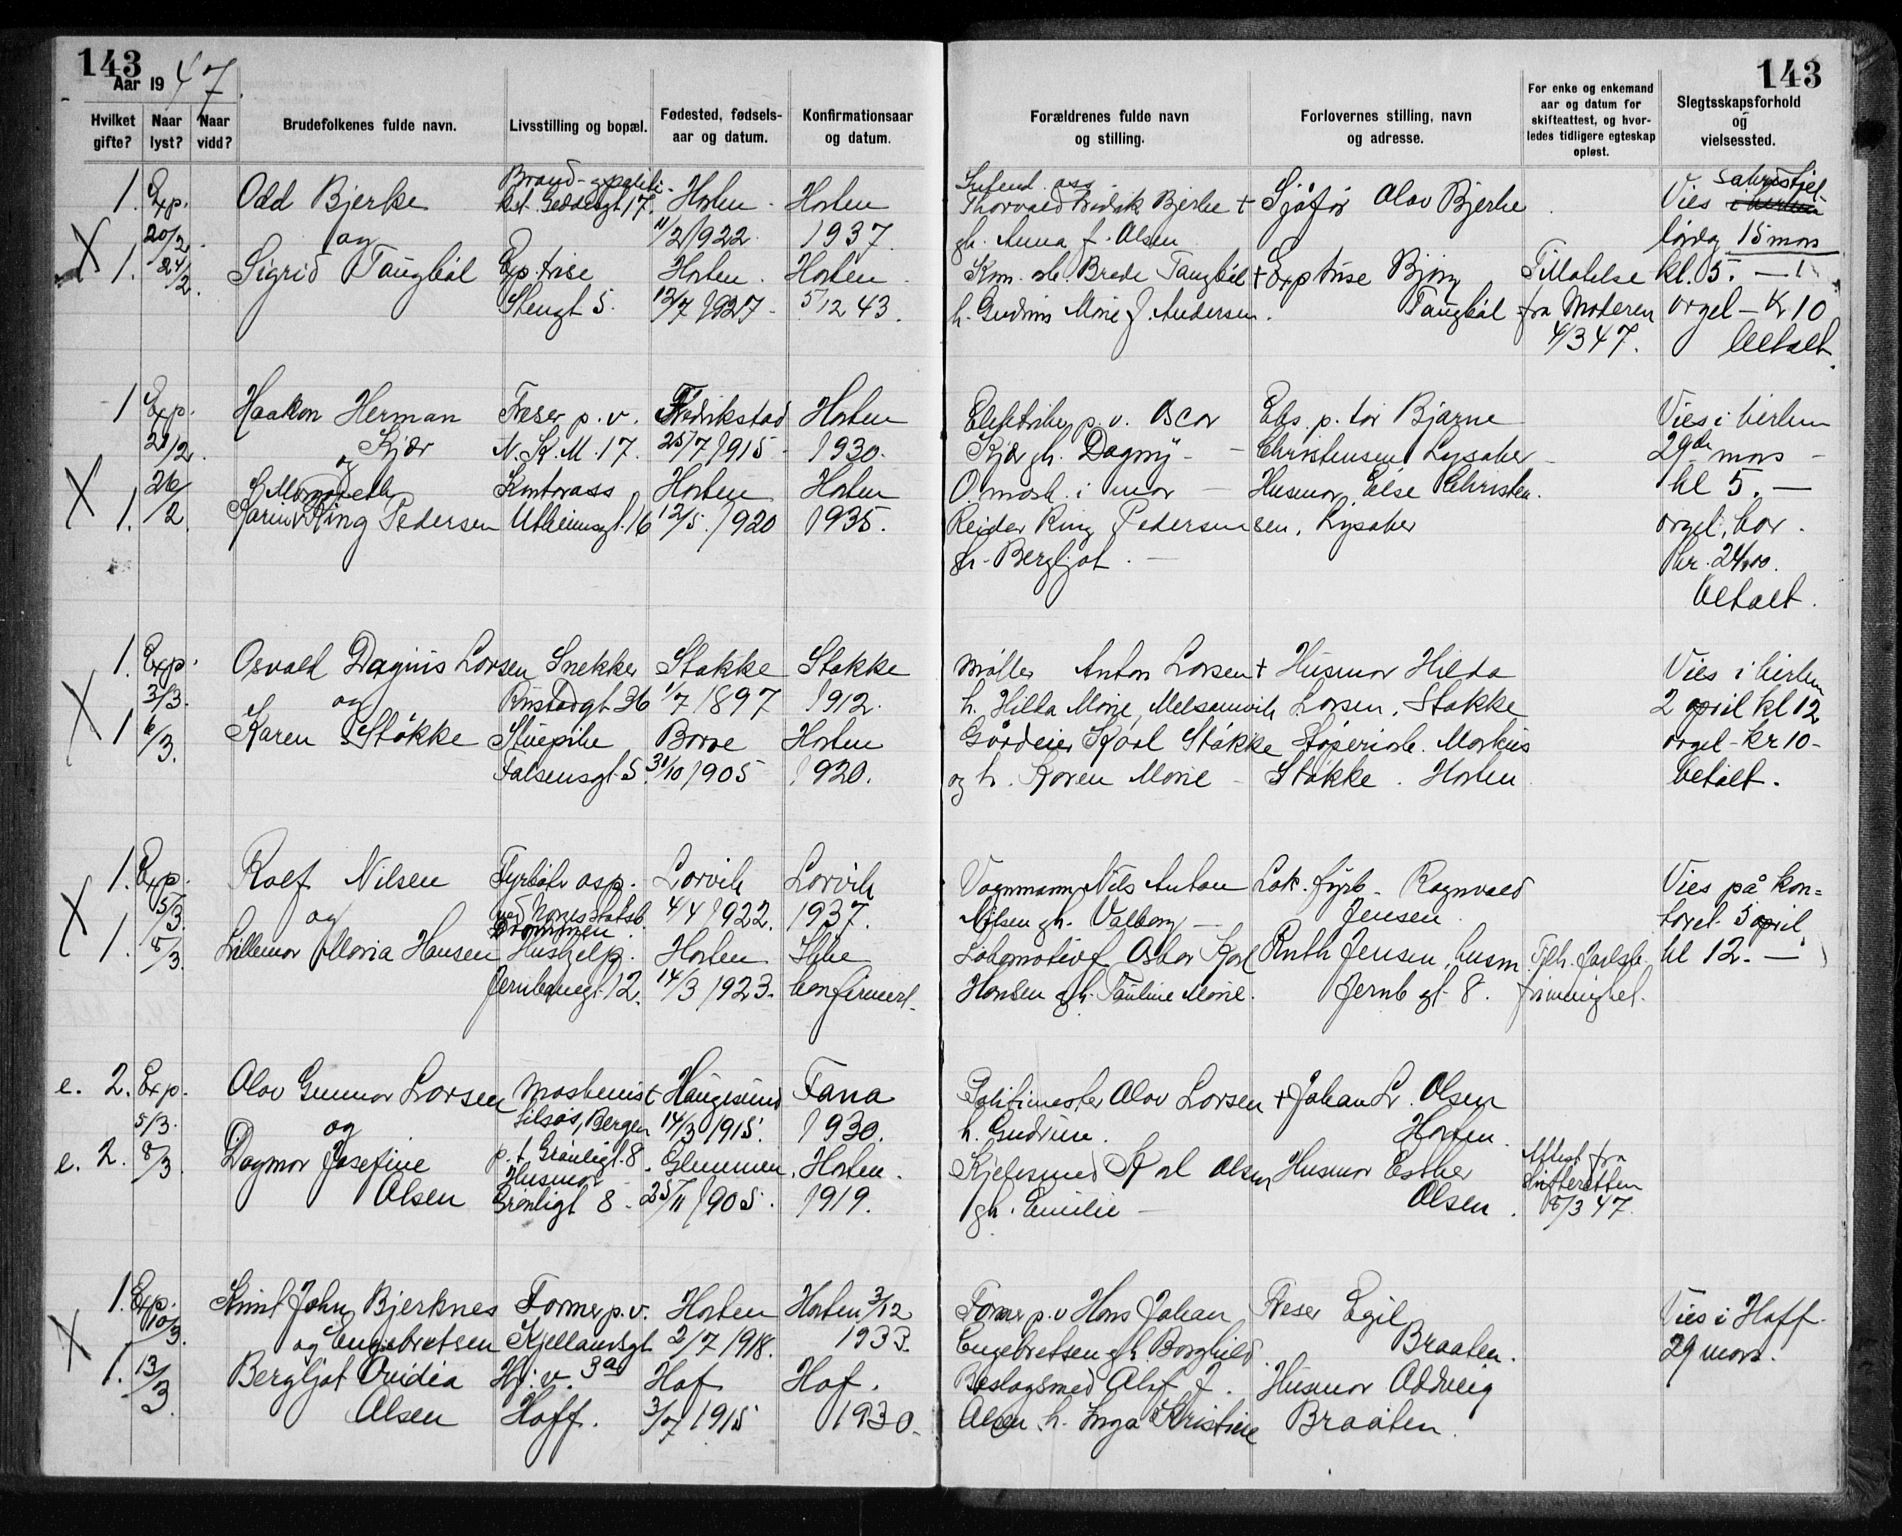 143
Aar 1947.
Hvilket gifte?
Naar lyst?
Naar vidd?
Brudefolkenes fulde navn.
Livsstilling og bopæl.
Fødested, fødsels-
aar og datum.
Konfirmationsaar
og datum.
1. Exp. Odd Bjerke Horten Horten
20/2 og 11/2 1922 1937
X 1. 24/2. Sigrid Taugbøl Exp. trise Horten. Horten
Stengt 5. 12/7 1927 5/12 43.
1 Exp. Haakon Herman Freser p. v. Fredrikstad Horten
21/2. og Kjær N. K. M. 17. 25/7 1915 1930.
X 26/2 Margareth Kontorass Horten Horten
1. Karin Ring Pedersen Utheimsgt. 16 12/5. 1920 1935.
1. Exp. Osvald Daginus Larsen Snekker Stokke Stokke
3/3. og Rustadgt 36 1/7 1897 1912.
X 1 6/3. Karen Støkke Stuepike Borre Horten
Falsensgt. 5. 31/10 1905 1920.
1. Exp. Rolf Nilsen Fyrbøt. asp. Larvik Larvik
X 5/3. og ved Norges Statsb. 4/4 1922. 1937.
Drammen.
1. 8/3. Lillemor Maria Hansen Hushjelp. Horten Ikke
Jernbanegt. 12. 14/3 1923. konfirmert.
e. 2. Exp. Olav Gunnar Larsen Maskinist Haugesund Fana
5/3. og Bergen 14/3 1915. 1930.
e. 2. 8/3 Dagmar Josefine p. t. Grønligt. 8. Glemmen. Horten.
Husmor
Olsen Grønligt 8 25/11 1905. 1919.
1. Exp. Knut John Bjerknes Former p. v. Horten Horten 3/12
10/3. og Engebretsen Kjellandsgt 2/7 1918. 1933.
X 1. 13/3. Bergljot Ovidia Hj. v. 3a Hof Hof.
Olsen Hoff. 3/7 1915 1930.
143
Forældrenes fulde navn
og stilling.
Forlovernes stilling, navn
og adresse.
For enke og enkemand
aar og datum for
skifteattest, og hvor-
ledes tidligere egteskap
opløst.
Slegtsskapsforhold
og
vielsessted.
Intend. ass. sakristiet
Thorvald Fredrik Bjerke + Sjåfør Olav Bjerke Vies i kirken
gh. Anna f. Olsen lørdag 15 mars
Brede Taugbøl + Exp trise Bjørg Tillatelse kl. 5. —
h. Gudrun Marie f. Andersen. Taugbøl fra Moderen orgel – Kr 10
4/3 47. betalt
p. v. Oscar Eks. p. tør Bjarne Vies i kirken
Kjær gh. Dagny — Christensen Lysaker 29de mars
O. mask. i mar — Husmor Else Christen. kl 5. —
Reidar Ring Pedersen sen, Lysaker orgel, kor.
gh. Bergljot. — kr. 24,00.
betalt.
Møller Anton Larsen + Husmor Hilda Vies i kirken
h. Hilda Marie, Melsomvik Larsen, Stokke 2 april kl 12
Gårdeier Karl Støkke Støperiarb. Markus orgel – kr 10 –
og h. Karen Marie – Støkke. Horten betalt.
Vognmann Nils Anton Lok. fyrb. Ragnvald Vies på kon=
Nilsen gh. Valborg — Jensen. toret 5 april
Lokomotivf. Oskar Karl Ruth Jensen, husm. kl 12. —
Hansen gh. Pauline Marie. Jernb gt. 8.
Politimester Olav Larsen + Johan Lr. Olsen
h. Gudrun. Horten.
Kjelesmed Karl Olsen Husmor Esther Attest fra
Skifteretten
gh. Emilie — Olsen. 8/3 47.
Former p. v Hans Johan Freser Egil Vies i Hoff
Engebretsen gh. Borghild. Braaten. 29 mars.
Beslagsmed Olaf J. Husmor Oddveig
Olsen h. Inga Kristine Braaten.